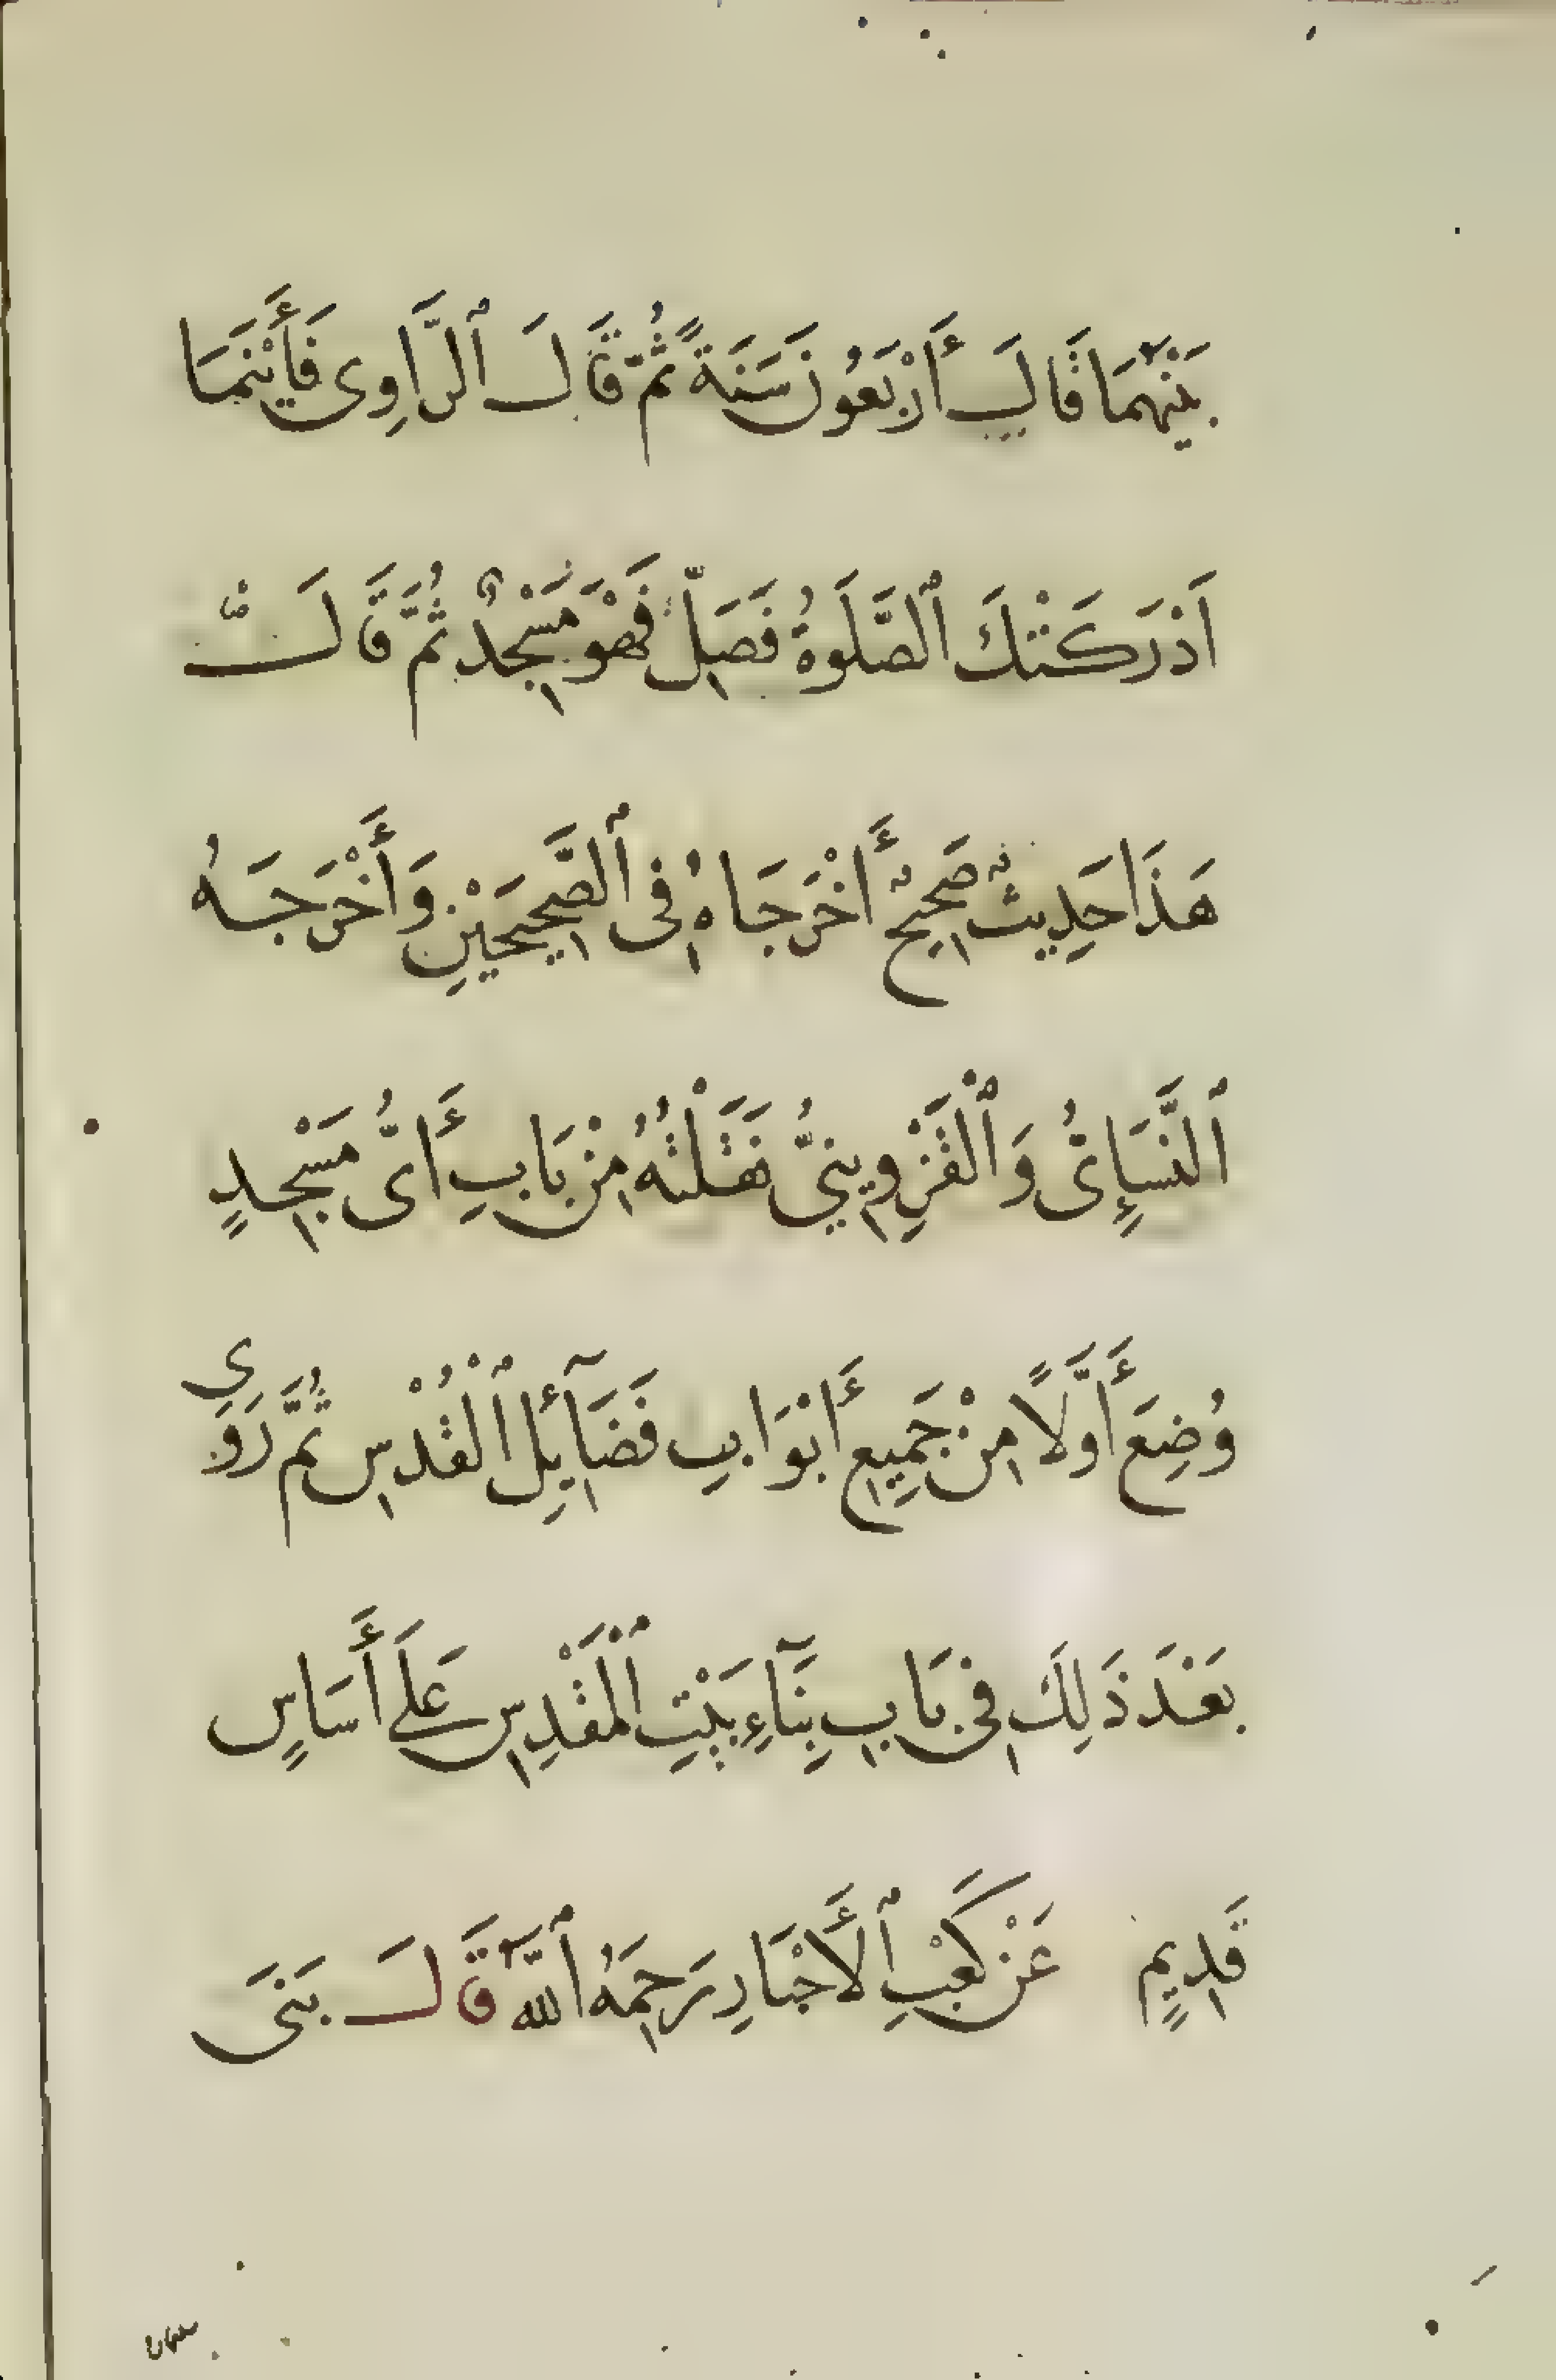 بَيْنَهُمَا قَالَ أَرْبَعُونَ سَنَةً ثُمَّ قَالَ ٱلرَّاوِى فَأَيْنَمَا
اَدْرَكَتْكَ ٱلصَّلَوةُ فَصَلِّ فَهْوَ مَسْجِدٌ ثُمَّ قَالَ
هَذَا حَدِيثٌ صَحِيحٌ أَخْرَجَاهُ فِى ٱلصَّحِيحَيْنِ وَأَخْرَجَهُ
ٱلنَّسَائِىُّ وَٱلْقَزْوِينِىُّ نَقَلْتُهُ مِنْ بَابِ أَىُّ مَسْجِدٍ
وُضِعَ أَوَّلًا مِنْ جَمِيعِ أَبْوَابِ فَضَآئِلِ ٱلْقُدْسِ ثُمَّ رَوَي
بَعْدَ ذَلِكَ فِى بَابِ بِنَآءِ بَيْتِ ٱلْمَقْدِسِ عَلَى أَسَاسٍ
قَدِيمٍ عَنْ كَعْبِ ٱلْأَحْبَارِ رَحِمَهُ ٱللَّهُ قَالَ بَنَى
سليمان